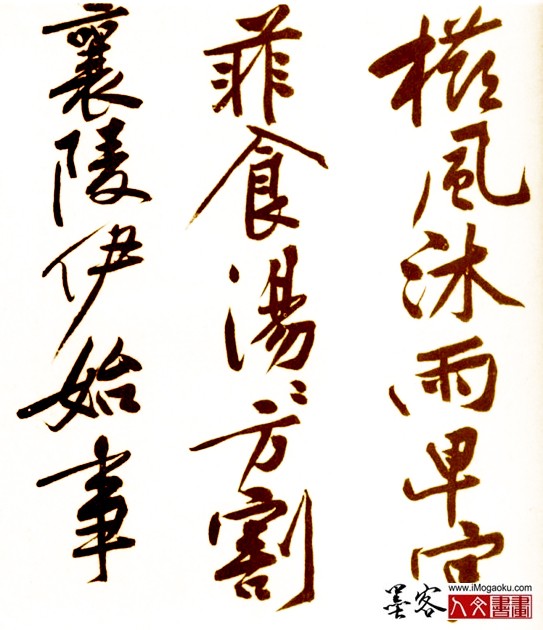 櫛風沐雨卑宮
菲食湯〻方割
襄陵伊始事
墨客
www.iMogaoku.com
人文書畫